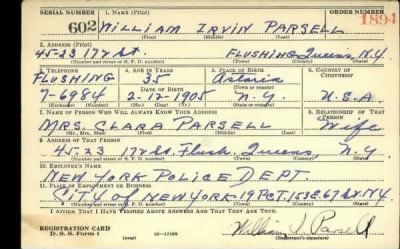 SERIAL NUMBER 1. NAME (Print) ORDER NUMBER
602 WILLIAM IRVIN PARSELL 1894
(First) (Middle) (Last)
2. ADDRESS (Print)
45-23 172 St. FLUSHING Queens N.Y.
(Number and street or R. F. D. number) (Town) (County) (State)
3. TELEPHONE 4. AGE IN YEARS 5. PLACE OF BIRTH 6. COUNTRY OF CITIZENSHIP
FLUSHING 35 Astoria
DATE OF BIRTH (Town or county)
7-6984 2-12-1905 N.Y. U.S.A.
(Exchange) (Number) (Mo.) (Day) (Yr.) (State or country)
7. NAME OF PERSON WHO WILL ALWAYS KNOW YOUR ADDRESS 8. RELATIONSHIP OF THAT PERSON
MRS. CLARA PARSELL Wife
(Mr., Mrs., Miss) (First) (Middle) (Last)
9. ADDRESS OF THAT PERSON
45-23 172 St. Flush. Queens, N.Y.
(Number and street or R. F. D. number) (Town) (County) (State)
10. EMPLOYER'S NAME
NEW YORK POLICE DEPT.
11. PLACE OF EMPLOYMENT OR BUSINESS
CITY OF NEW YORK 19 PCT. 153 E 67 St. N.Y.
(Number and street or R. F. D. number) (Town) (County) (State)
I AFFIRM THAT I HAVE VERIFIED ABOVE ANSWERS AND THAT THEY ARE TRUE.
REGISTRATION CARD
D. S. S. Form 1 William I. Parsell
(Registrant's signature)